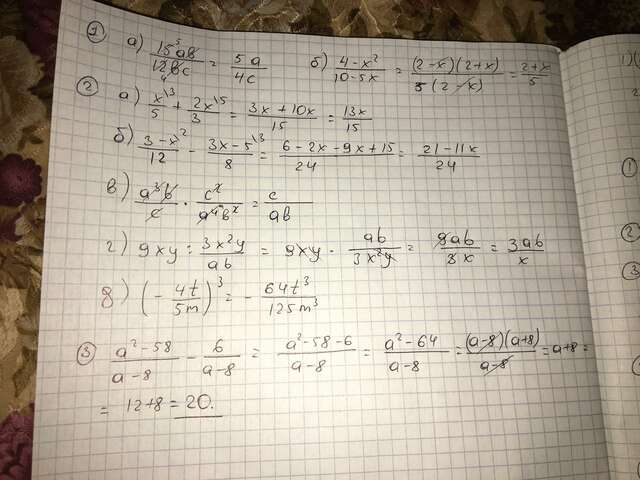 ① а) 15⁵ab/12₄bc = 5a/4c б) 4-x²/10-5x = (2-x)(2+x)/5(2-x) = 2+x/5
② а) x\³/5 + 2x\⁵/3 = 3x+10x/15 = 13x/15
б) 3-x\²/12 - 3x-5\³/8 = 6-2x-9x+15/24 = 21-11x/24
в) a³b/c · c²/a⁴b² = c/ab
г) 9xy : 3x²y/ab = 9xy · ab/3x²y = 9ab/3x = 3ab/x
д) (-4t/5m)³ = -64t³/125m³
③ a²-58/a-8 - 6/a-8 = a²-58-6/a-8 = a²-64/a-8 = (a-8)(a+8)/a-8 = a+8 =
= 12+8 = 20.